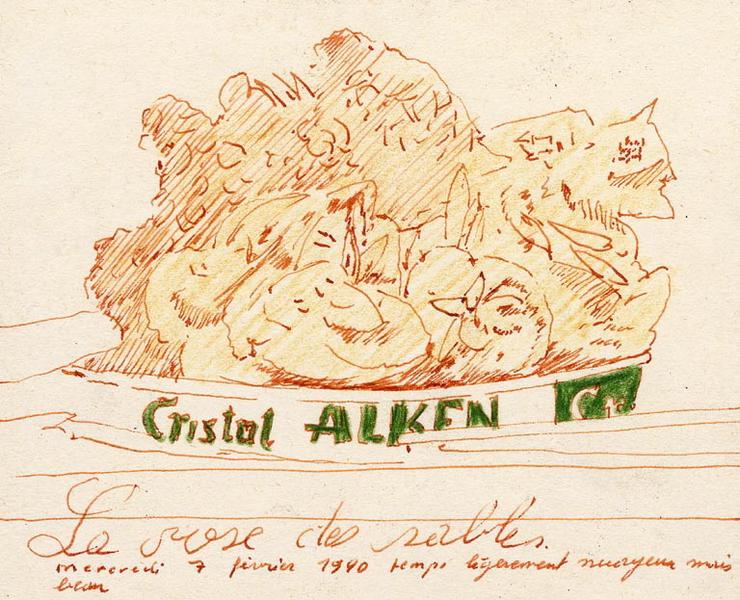 Cristal ALKEN
La rose des sables.
mercredi 7 février 1990 temps légèrement nuageux mais
beau